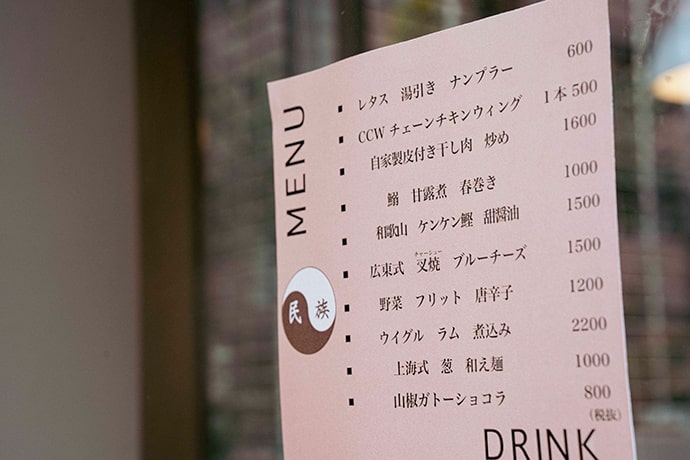 MENU
民 族
レタス 湯引き ナンプラー 600
CCW チェーンチキンウィング 1本 500
自家製皮付き干し肉 炒め 1600
鰯 甘露煮 春巻き 1000
和歌山 ケンケン鰹 甜醤油 1500
チャーシュー
広東式 叉焼 ブルーチーズ 1500
野菜 フリット 唐辛子 1200
ウイグル ラム 煮込み 2200
上海式 葱 和え麺 1000
山椒ガトーショコラ 800
(税抜)
DRINK